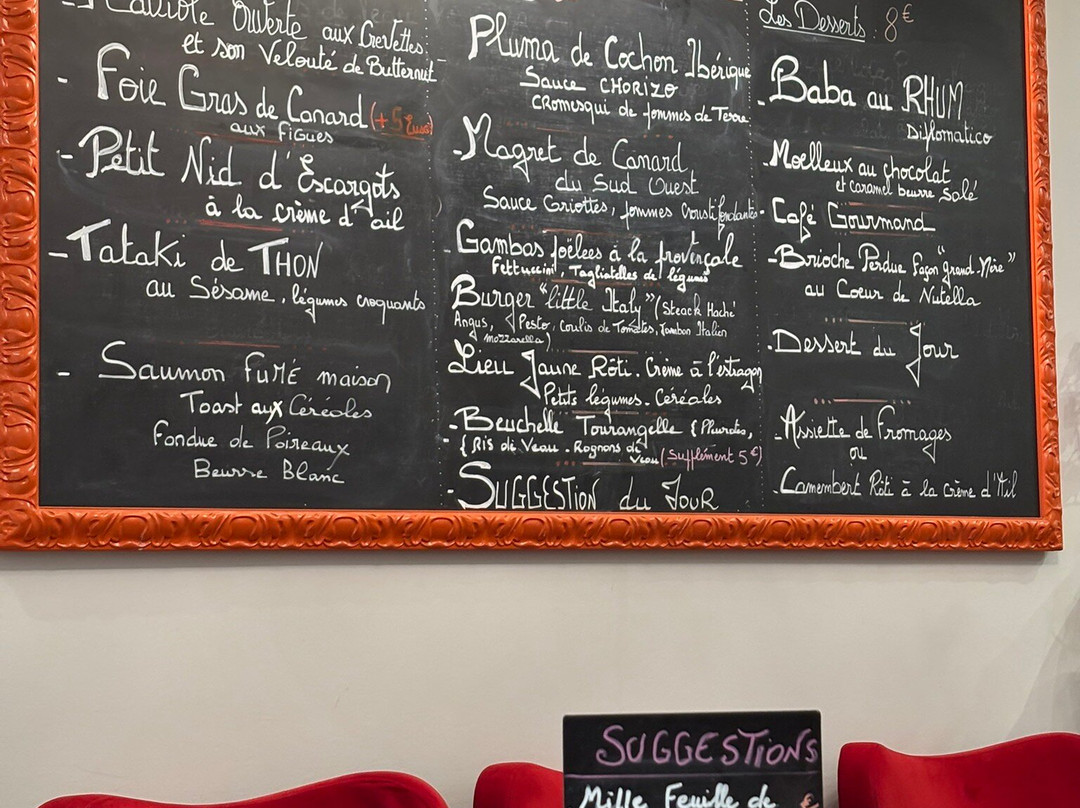 Ouverte aux Crevettes,
et son Velouté de Butternut
- Foie Gras de Canard (+5 Euros)
aux figues
- Petit Nid d'Escargots
à la crème d'ail
- Tataki de THON
au Sésame, légumes croquants
- Saumon FUMÉ maison
Toast aux Céréales
Fondue de Poireaux
Beurre Blanc
Pluma de Cochon Ibérique
Sauce CHORIZO
cromesqui de pommes de Terre
- Magret de Canard
du Sud Ouest
Sauce Griottes, pommes croustifondantes
- Gambas poêlees à la provençale
Fettuccini, Tagliatelles de légumes
Burger "little Italy" (Steack Haché
Angus, Pesto, Coulis de Tomates, Jambon Italien
mozzarella)
Lieu Jaune Rôti. Crème à l'estragon
Petits légumes. Céréales
- Beuchelle Tourangelle { Pleurotes,
{ Ris de Veau - Rognons de
Veau (Supplément 5€)
- SUGGESTION du JOUR
Les Desserts : 8€
- Baba au RHUM
Diplomatico
- Moelleux au chocolat
et caramel beurre Salé
- Café Gourmand
- Brioche Perdue façon "grand-Mère"
au Coeur de Nutella
- Dessert du Jour
- Assiette de Fromages
ou
- Camembert Rôti à la Crème d'Ail
SUGGESTIONS
Mille Feuille de €